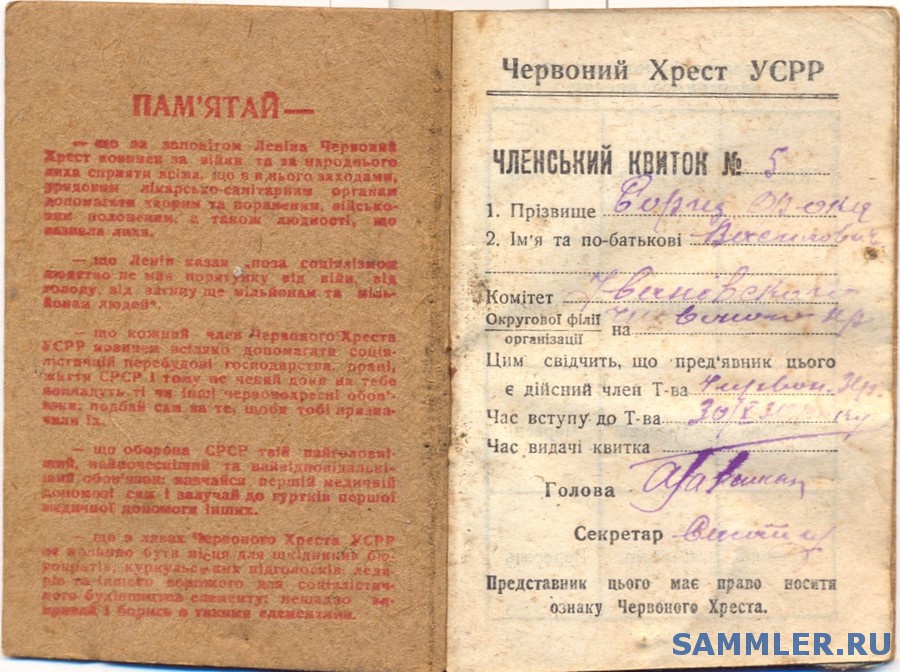 ПАМ'ЯТАЙ—
— що за заповітом Леніна Червоний
Хрест повинен за війни та за народнього
лиха сприяти всіма, що є в нього заходами,
урядовим лікарсько-санітарним органам
допомагати хворим та пораненим, військо-
вим полоненим, а також людності, що
зазнала лиха.
— що Ленін казав „поза соціялізмом
людство не має порятунку від війн, від
голоду, від загину ще мільйонам та міль-
йонам людей".
— що кожний член Червоного Хреста
УСРР повинен всіляко допомагати соція-
лістичній перебудові господарства, праці,
життя СРСР і тому не чекай доки на тебе
покладуть ті чи інші червонохресні обов'-
язки: подбай сам за те, щоби тобі призна-
чили їх.
— що оборона СРСР твій найголовні-
ший, найпочесніший та найвідповідальні-
ший обов'язок: навчайся першій медичній
допомозі сам і залучай до гуртків першої
медичної допомоги інших.
— що в лавах Червоного Хреста УСРР
не повинно бути місця для шкідників бю-
рократів, куркульських підголосків, ледя-
рів та іншого ворожого для соціялістич-
ного будівництва елементу: нещадно ви-
кривай і борись з такими елементами.
Червоний Хрест УСРР
ЧЛЕНСЬКИЙ КВИТОК № 5
1. Прізвище
2. Ім'я та по-батькові
Комітет
Округової філії
організації на
Цим свідчить, що пред'явник цього
є дійсний член Т-ва
Час вступу до Т-ва 30/
Час видачі квитка
Голова
Секретар
Представник цього має право носити
ознаку Червоного Хреста.
SAMMLER.RU